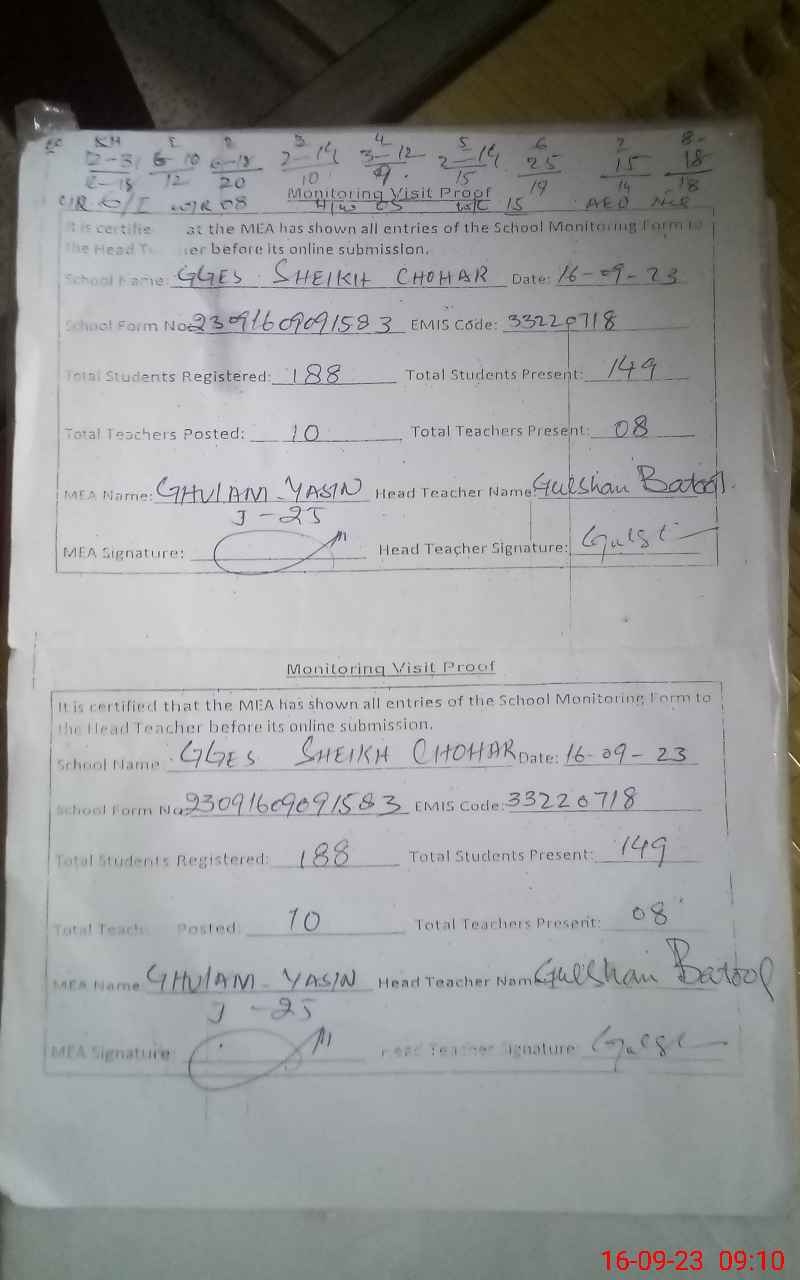 KH 1 2 3 4 5 6 7 8
2-3 6-10 6-18 2-14 3-12 2-14 25 15 18
2-18 12 20 10 9 15 19 14 18
Monitoring Visit Proof
C/R W/R 08 H/W 05 15 AEO
It is certifie at the MEA has shown all entries of the School Monitoring Form to
the Head T er before its online submission.
School Name: GGES SHEIKH CHOHAR Date: 16-09-23
School Form No 23091609091583 EMIS Code: 33220718
Total Students Registered: 188 Total Students Present: 149
Total Teachers Posted: 10 Total Teachers Present: 08
MEA Name: GHULAM YASIN Head Teacher Name Gulshan Batool.
J-25
MEA Signature: Head Teacher Signature:
Monitoring Visit Proof
It is certified that the MEA has shown all entries of the School Monitoring Form to
the Head Teacher before its online submission.
School Name GGES SHEIKH CHOHAR Date: 16-09-23
School Form No 23091609091583 EMIS Code: 33220718
Total Students Registered: 188 Total Students Present: 149
Total Teach Posted: 10 Total Teachers Present: 08
MEA Name GHULAM YASIN Head Teacher Nam Gulshan Batool
J-25
MEA Signature: Head Teacher Signature:
16-09-23 09:10